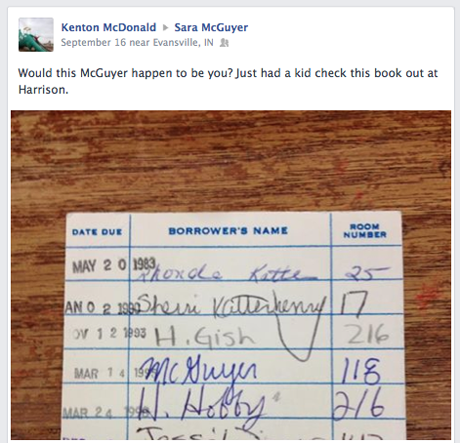 Kenton McDonald ▸ Sara McGuyer
September 16 near Evansville, IN
Would this McGuyer happen to be you? Just had a kid check this book out at
Harrison.
DATE DUE BORROWER'S NAME ROOM NUMBER
MAY 2 0 1983 Rhonda Katte 25
AN 0 2 Sherri Katterhenry 17
OV 1 2 1993 H. Gish 216
MAR 1 4 McGuyer 118
MAR 24 H. Hobby 216